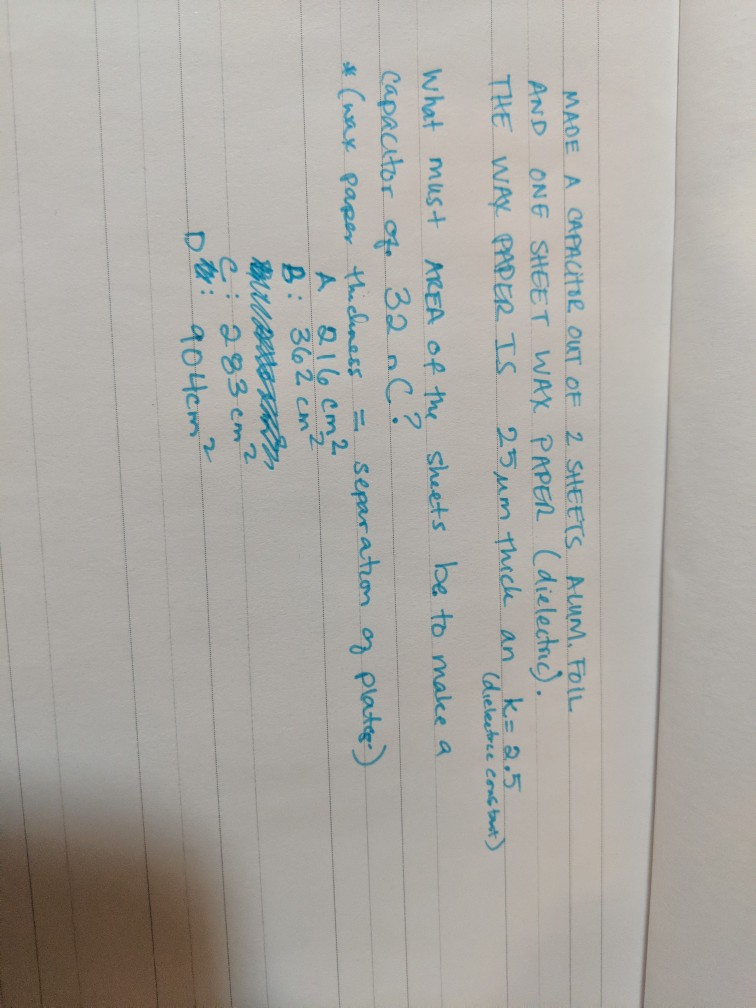 MADE A CAPACITOR OUT OF 2 SHEETS ALUM. FOIL
AND ONE SHEET WAX PAPER (dielectric).
THE WAX PAPER IS 25 μm thick an k = 2.5
(dielectric constant)
What must AREA of the sheets be to make a
capacitor of 32 nC?
* (wax paper thickness = separation of plates)
A 216 cm²
B: 362 cm²
C: 283 cm²
D: 904cm²